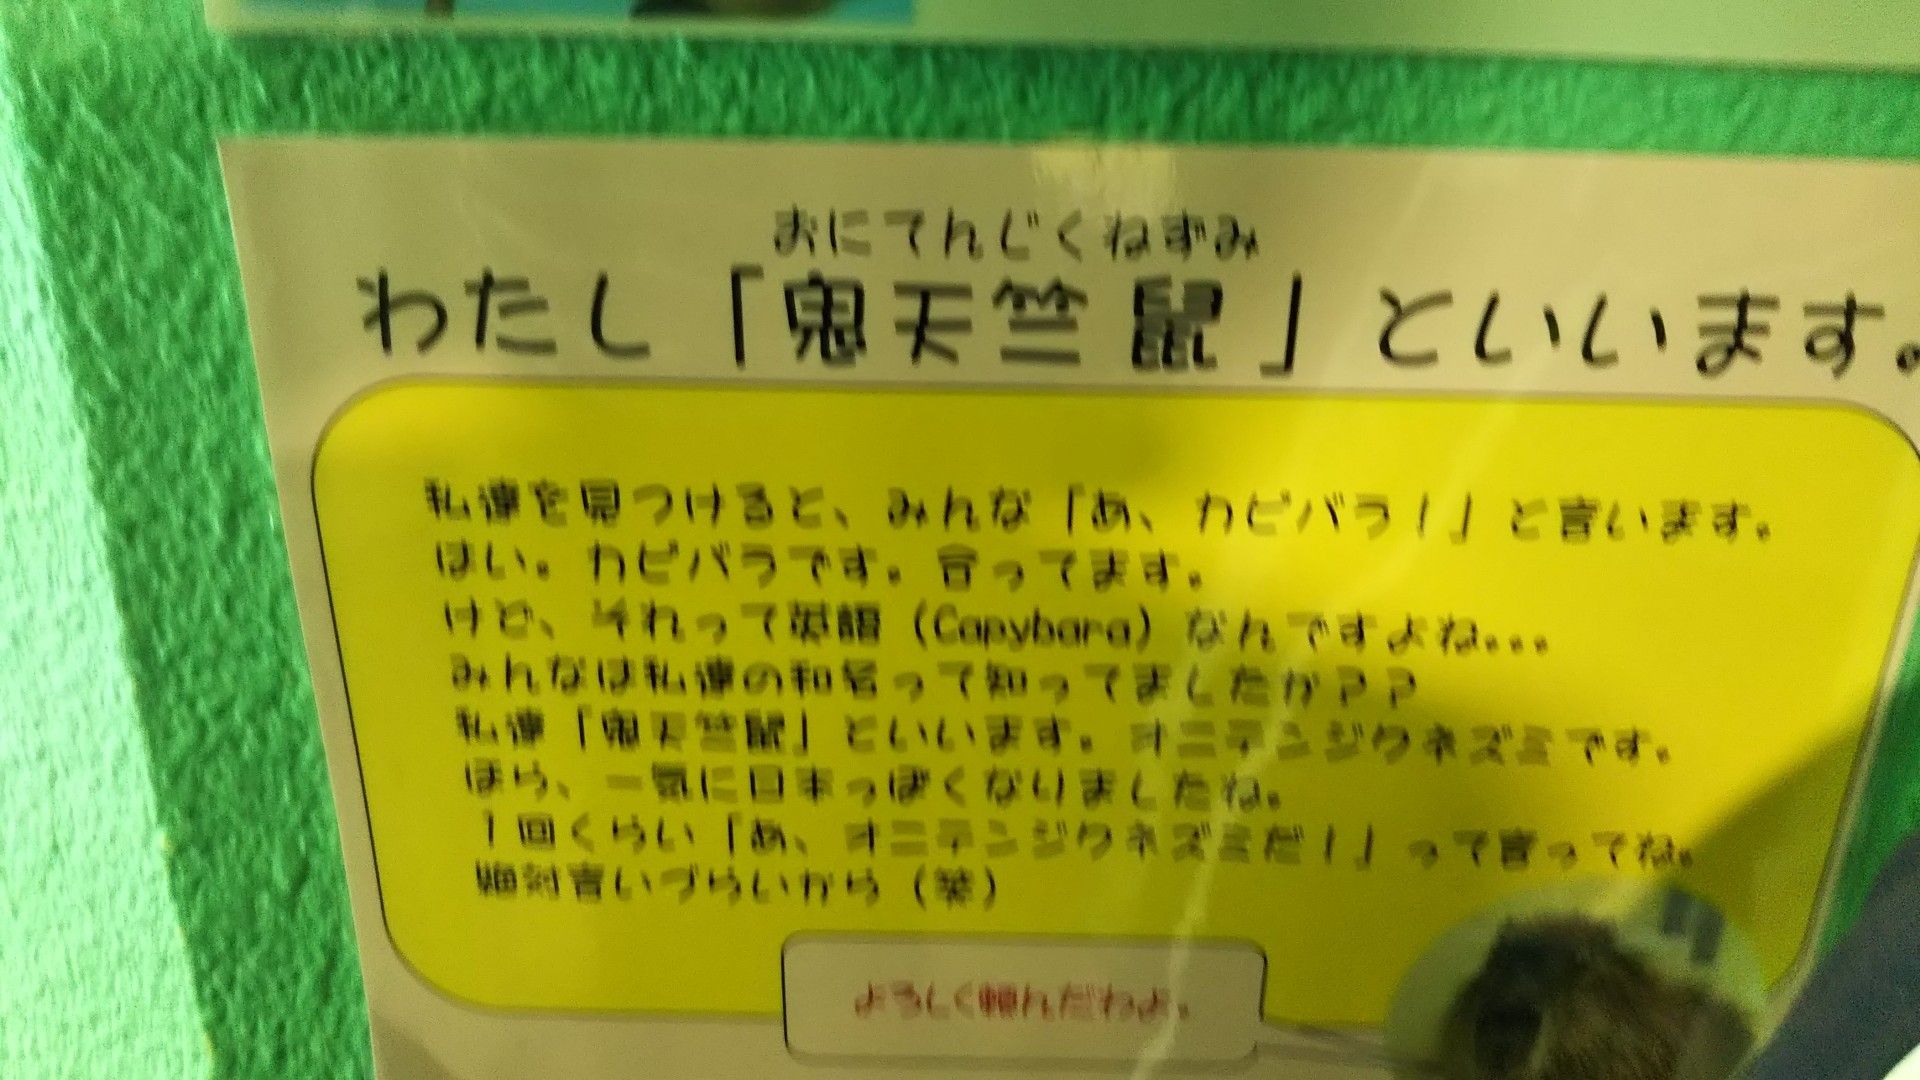 おにてんじくねずみ
わたし「鬼天竺鼠」といいます。
私達を見つけると、みんな「あ、カピバラ！」と言います。
はい。カピバラです。合ってます。
けど、それって英語（Capybara）なんですよね。。。
みんなは私達の和名って知ってましたか？？
私達「鬼天竺鼠」といいます。オニテンジクネズミです。
ほら、一気に日本っぽくなりましたね。
１回くらい「あ、オニテンジクネズミだ！」って言ってね。
絶対言いづらいから（笑）
よろしく頼んだわよ。